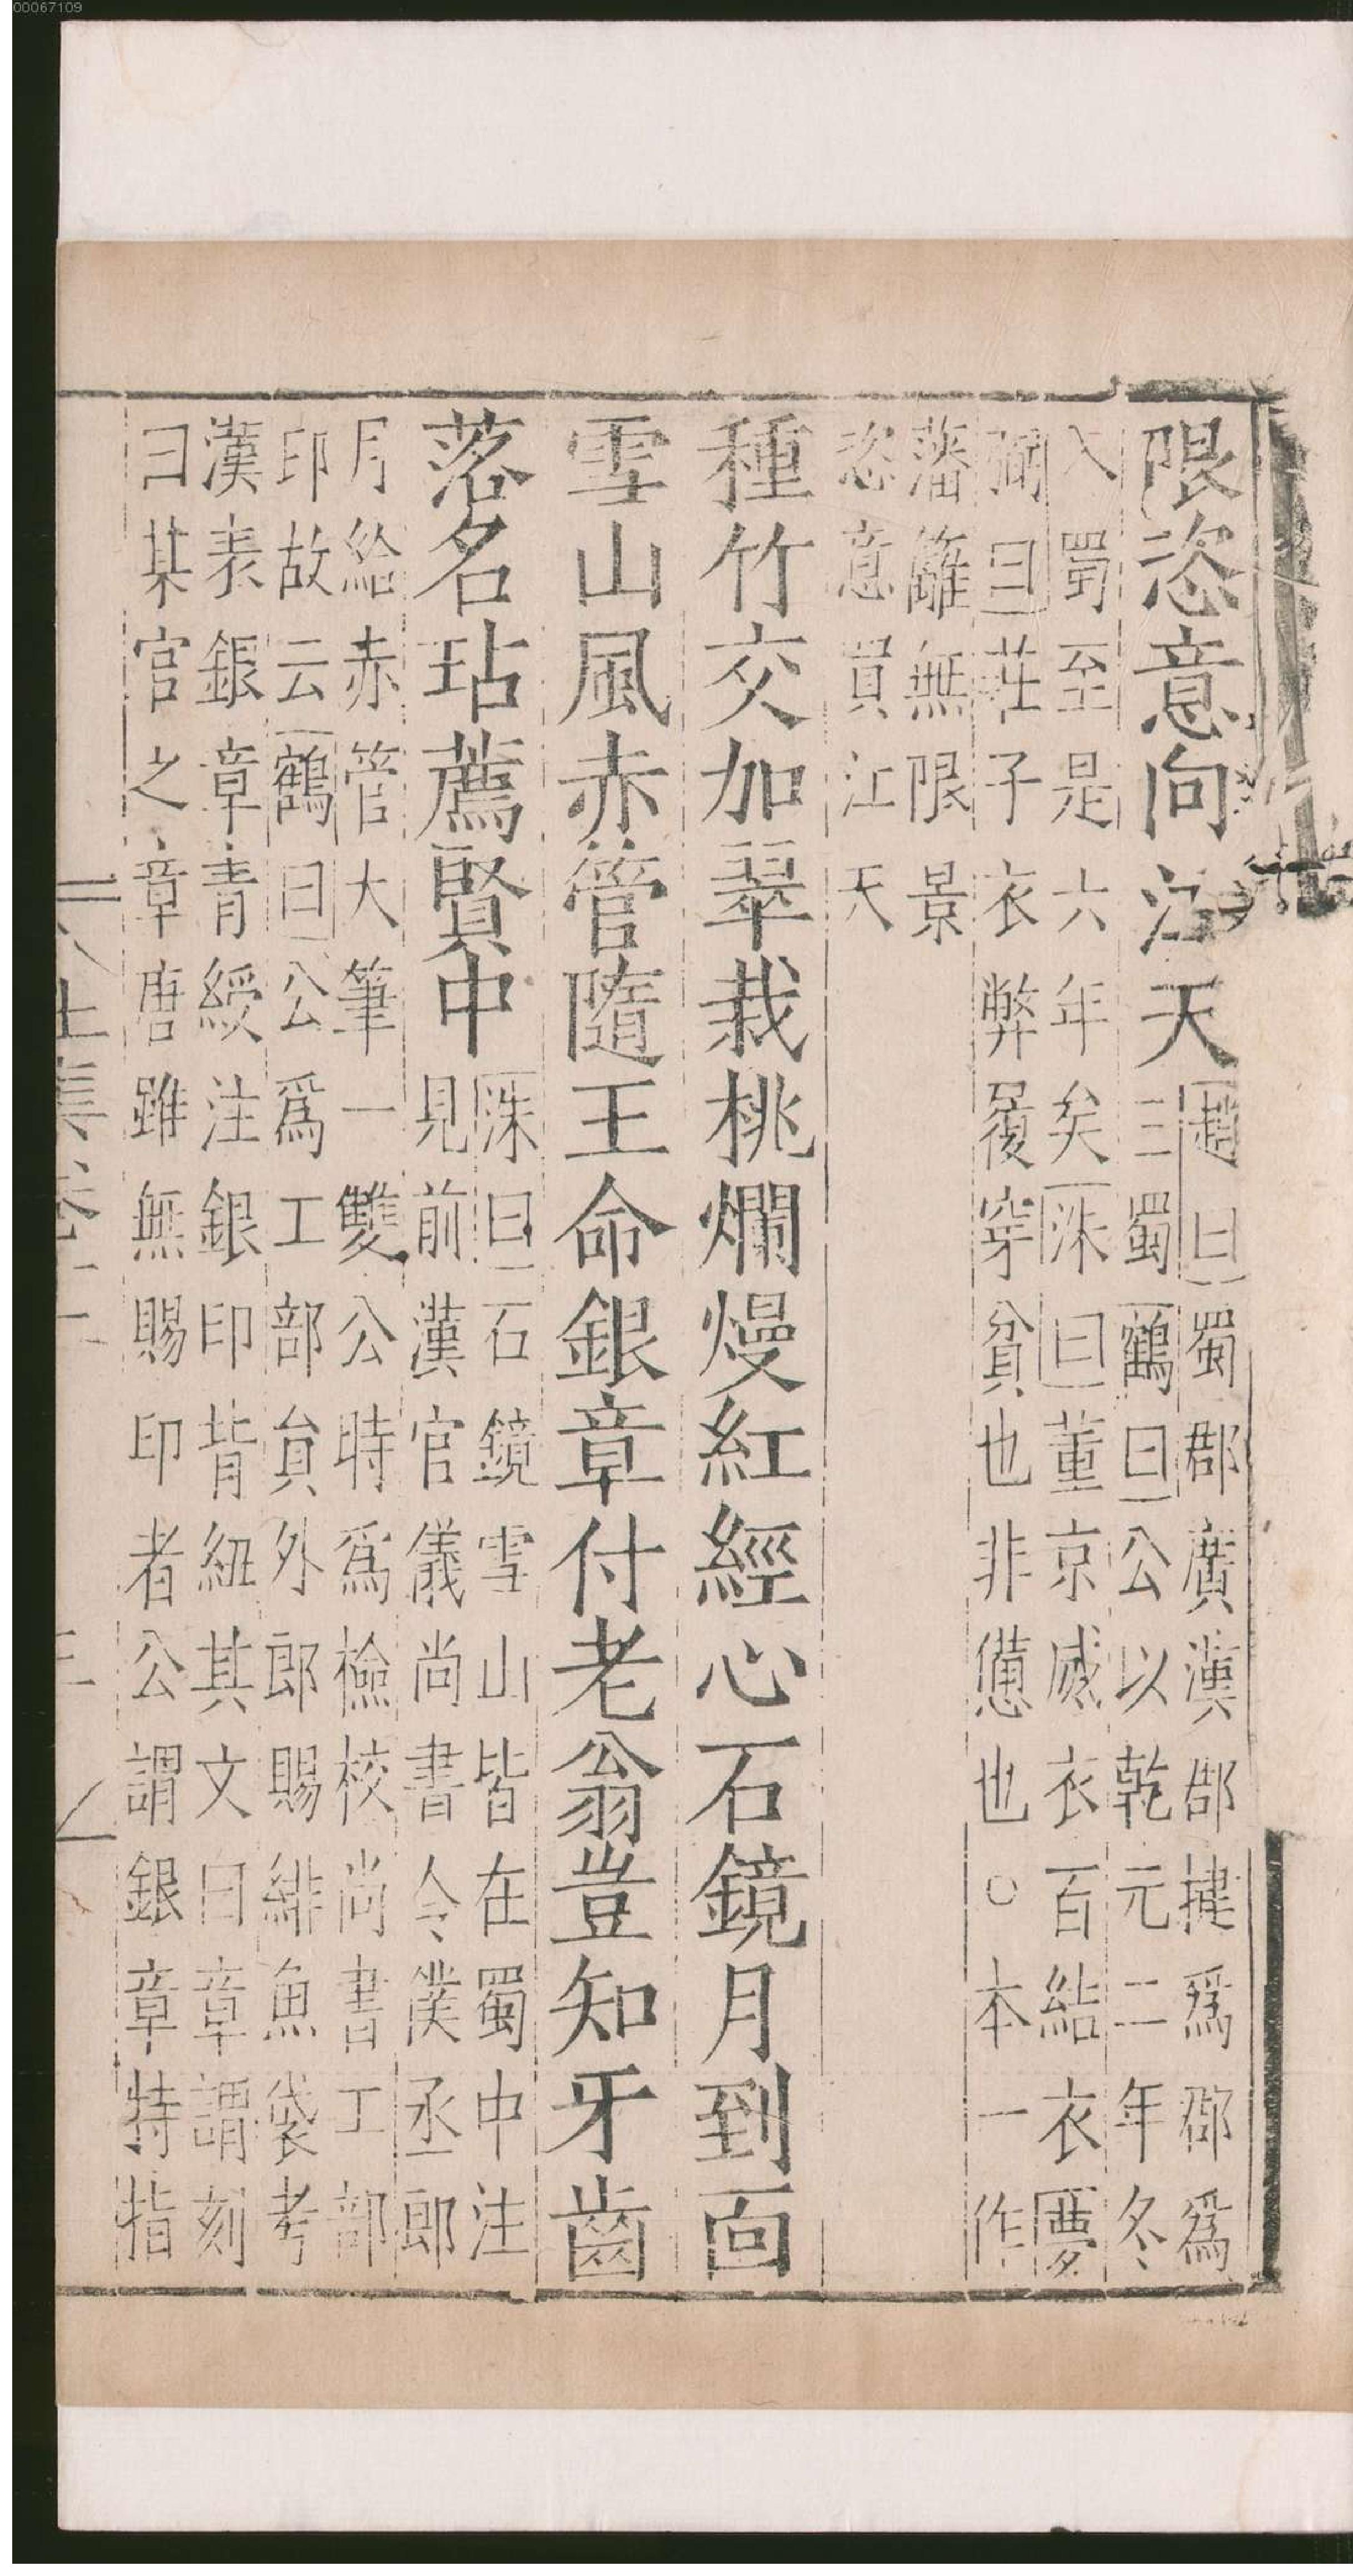 00067109
限恣意向江天
趙曰蜀郡廣漢郡揵爲郡爲
三蜀鶴曰公以乾元二年冬
入蜀至是六年矣洙曰董京威衣百結衣夢
弼曰莊子衣弊履穿貧也非憊也○本一作
藩籬無限景
恣意買江天
種竹交加翠栽桃爛熳紅經心石鏡月到面
雪山風赤管隨王命銀章付老翁豈知牙齒
落名玷薦賢中
洙曰石鏡雪山皆在蜀中注
見前漢官儀尚書令僕丞郎
月給赤管大筆一雙公時爲檢校尚書工部
印故云鶴曰公爲工部貟外郎賜緋魚袋考
漢表銀章青綬注銀印背紐其文曰章謂刻
曰某官之章唐雖無賜印者公謂銀章特指